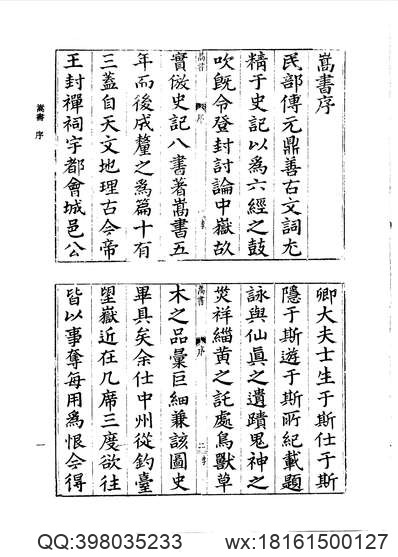 嵩書序
民部傅元鼎善古文詞尤
精于史記以為六經之鼓
吹旣令登封討論中嶽故
嵩書 序
實倣史記八書著嵩書五
年而後成釐之為篇十有
三蓋自天文地理古今帝
王封禪祠宇都會城邑公
卿大夫士生于斯仕于斯
隱于斯遊于斯所紀載題
詠與仙真之遺蹟鬼神之
災祥緇黃之託處鳥獸草
嵩書 序 二
木之品彙巨細兼該圖史
畢具矣余仕中州從釣臺
望嶽近在几席三度欲往
皆以事奪每用為恨今得
嵩書 序
一
QQ:398035233 wx:18161500127